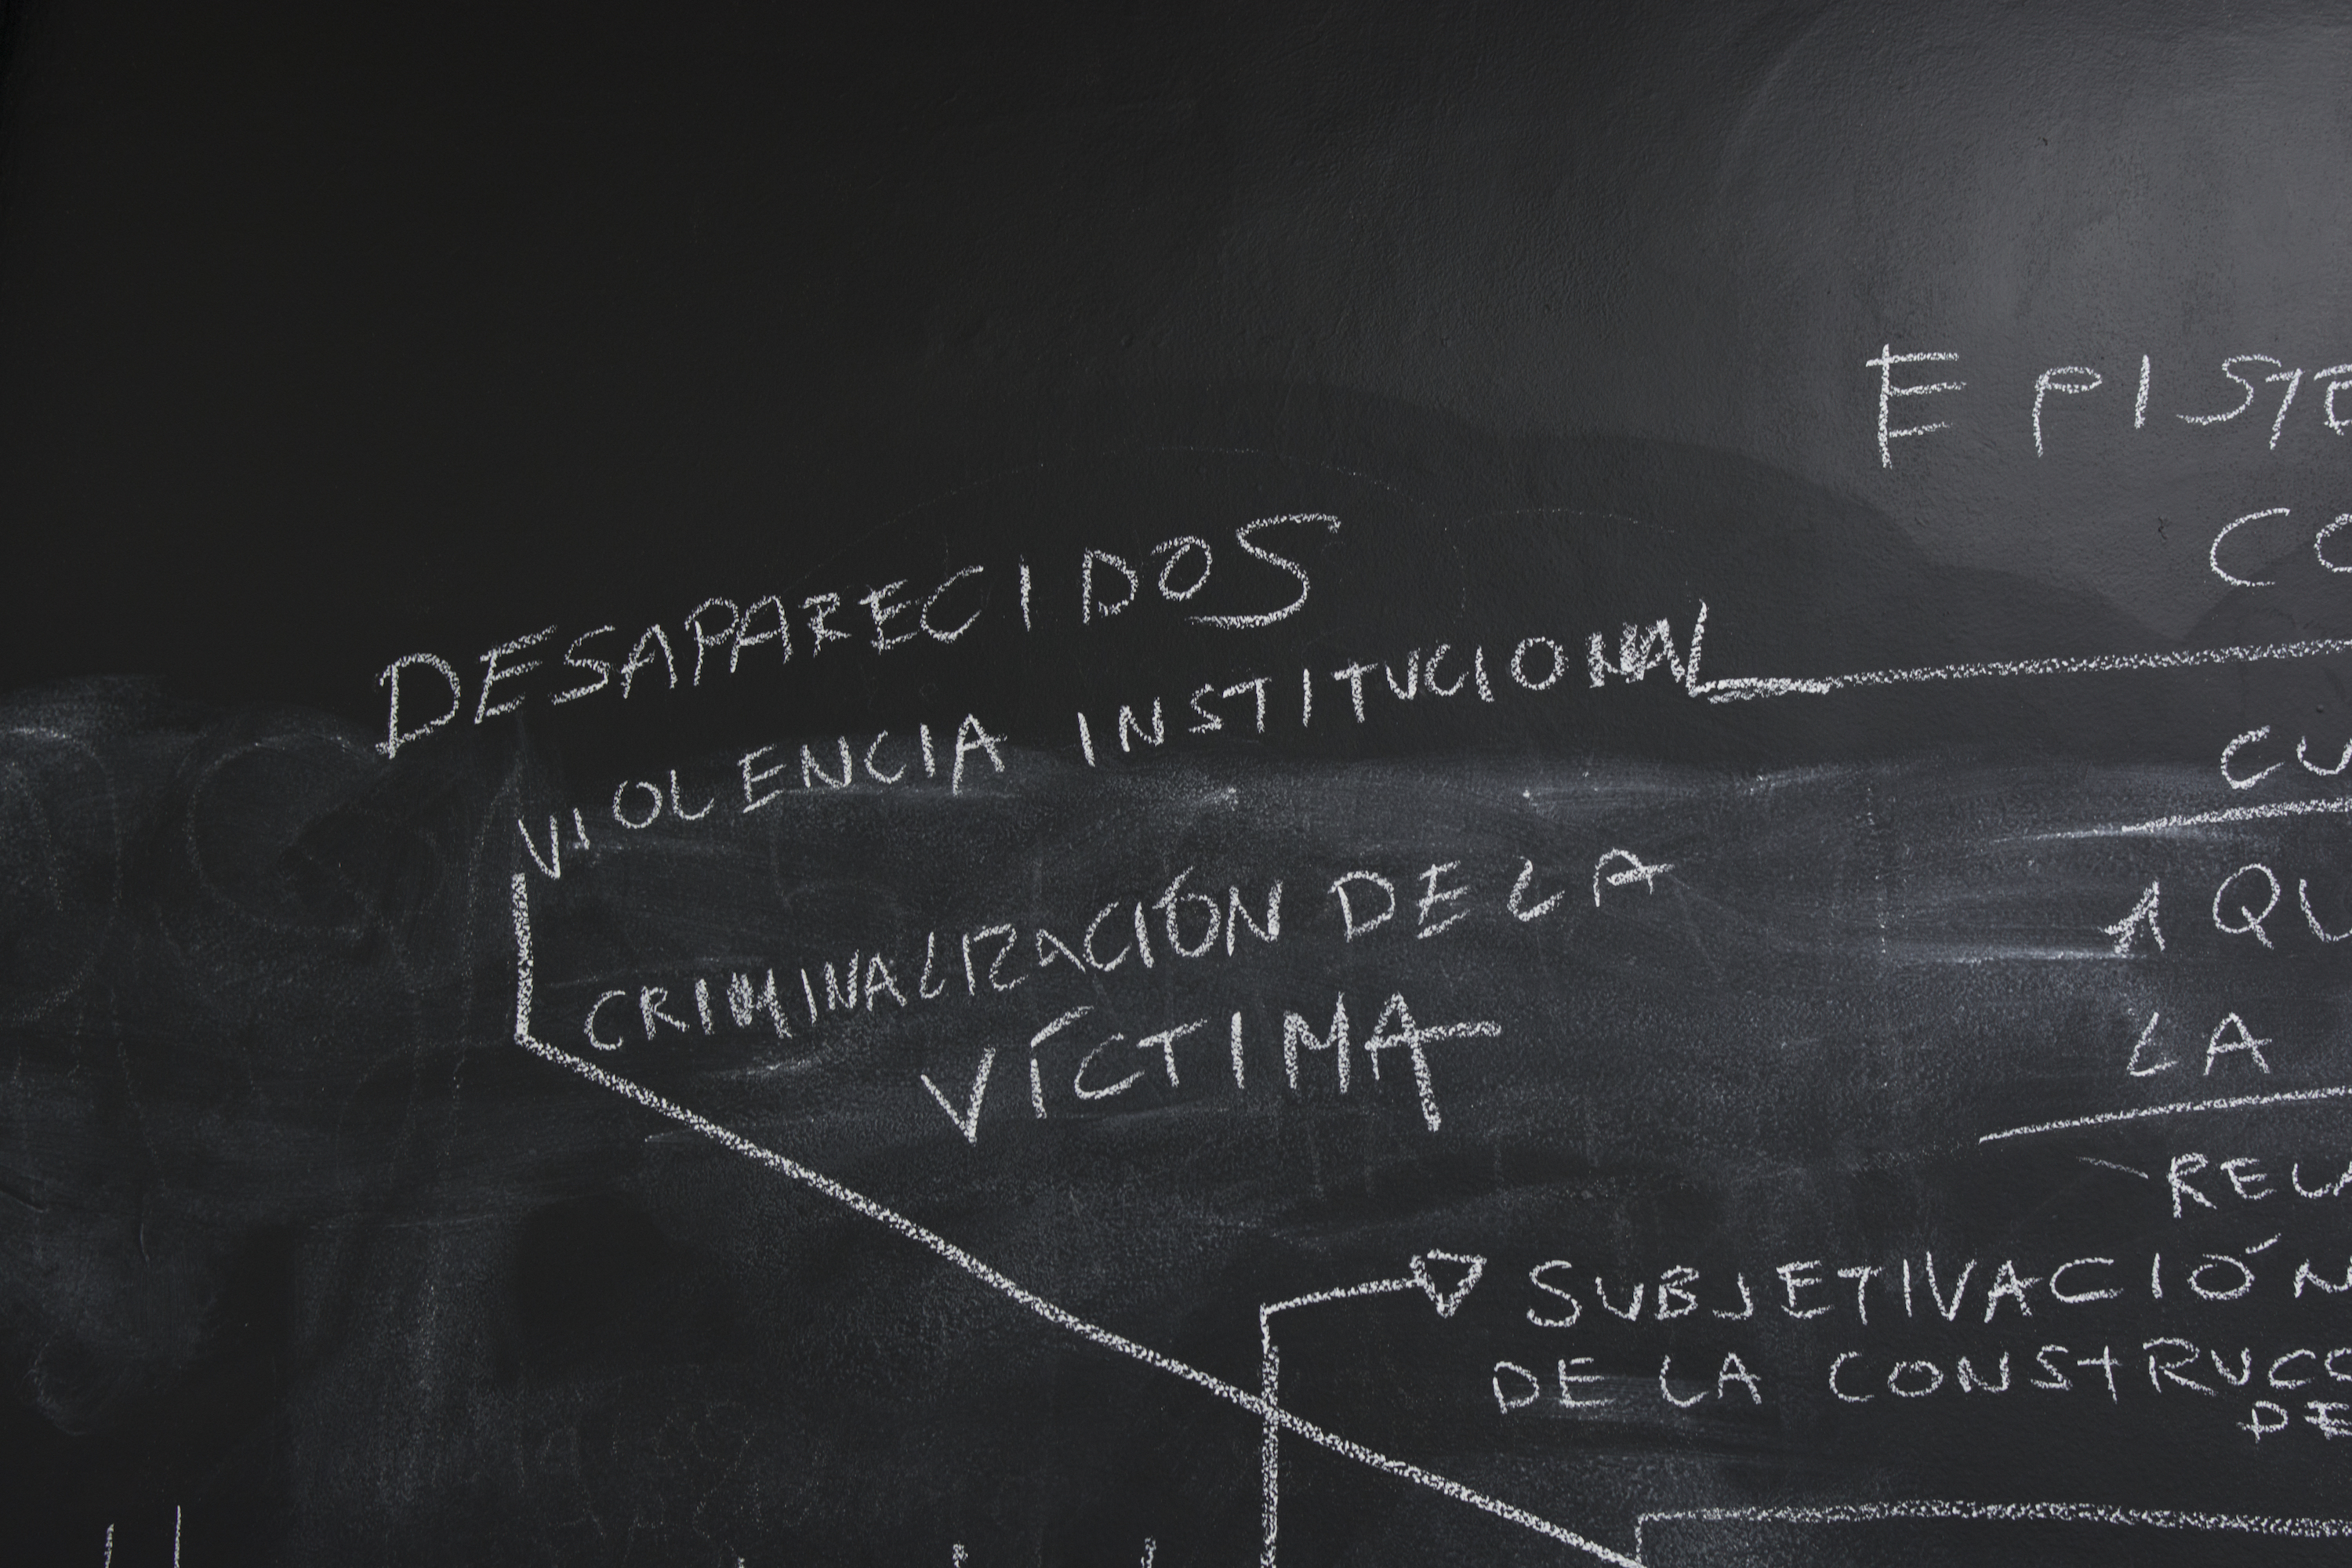 DESAPARECIDOS
VIOLENCIA INSTITUCIONAL
CRIMINALIZACIÓN DE LA
VÍCTIMA
EPISTE
CO
CU
A QU
LA
RELA
SUBJETIVACIÓN
DE LA CONSTRUCC
DE